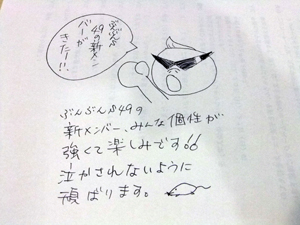 ぶんぶんぶ
49の新メン
バーが
きたー!!
ぶんぶんぶ49の
新メンバー、みんな個性が
強くて楽しみです!!
泣かされないように
頑ばります。